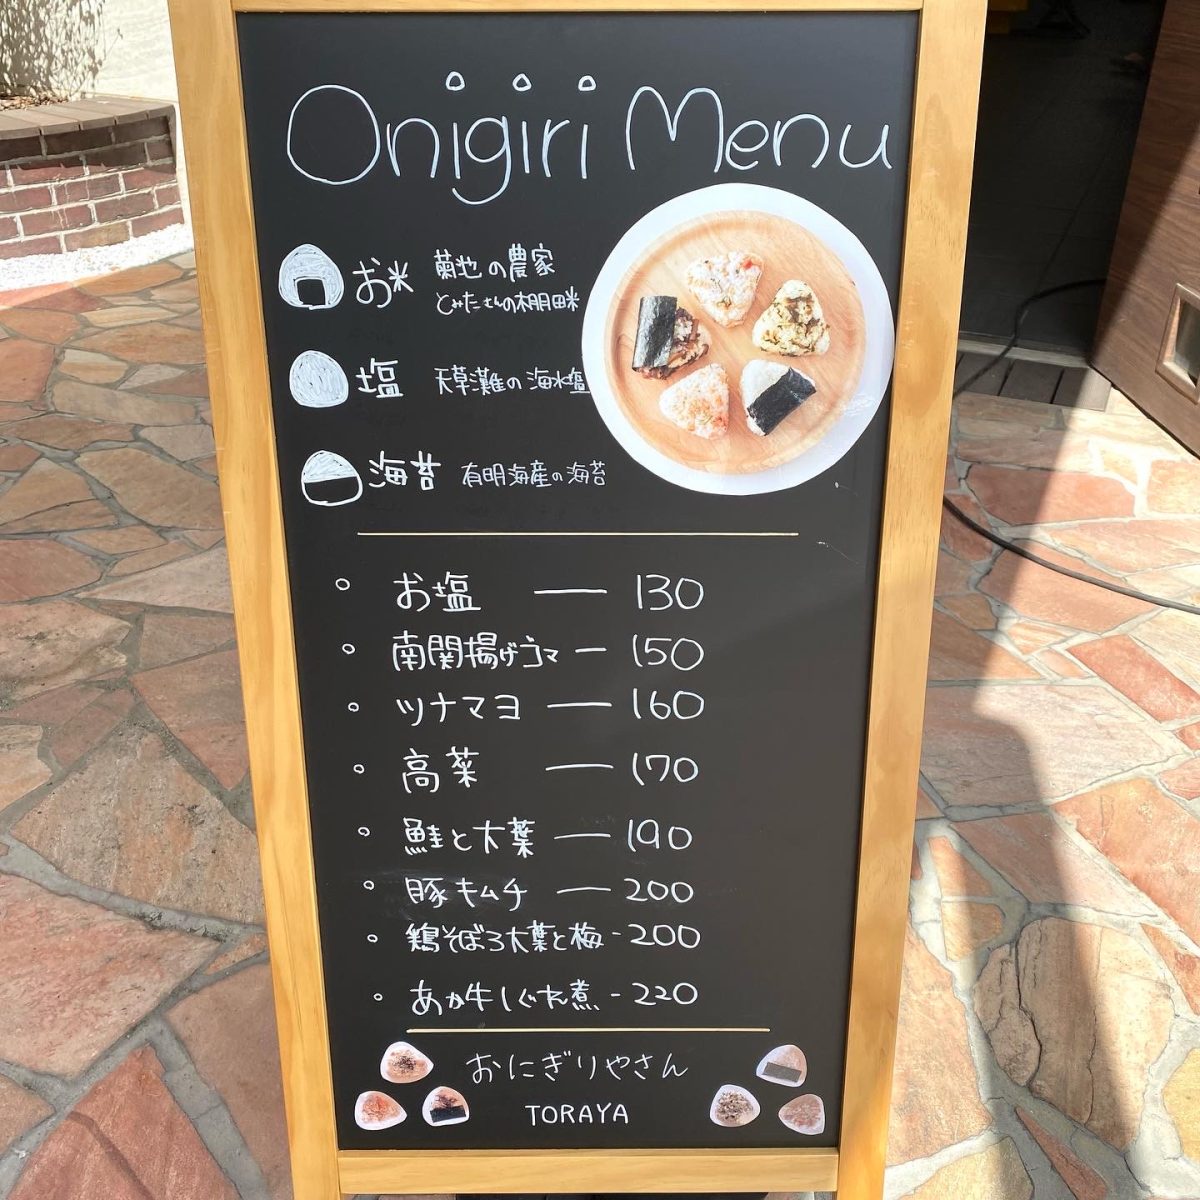 Onigiri Menu
お米 菊池の農家
とみたさんの棚田米
塩 天草灘の海水塩
海苔 有明海産の海苔
お塩 — 130
南関揚げゴマ — 150
ツナマヨ — 160
高菜 — 170
鮭と大葉 — 190
豚キムチ — 200
鶏そぼろ大葉と梅 - 200
あか牛しぐれ煮 - 220
おにぎりやさん
TORAYA